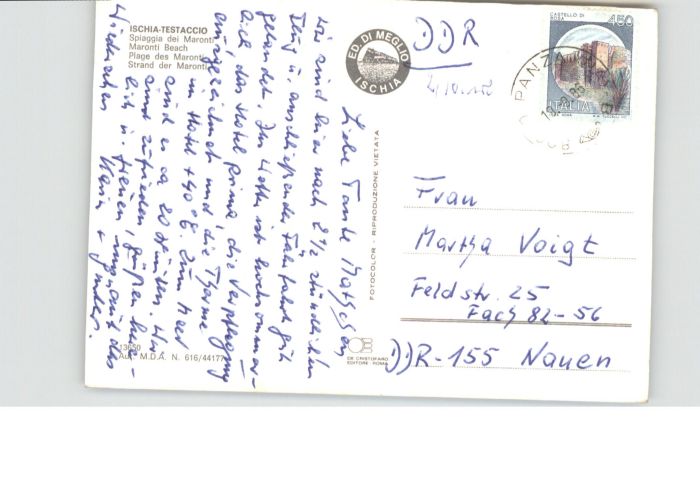 ISCHIA-TESTACCIO
Spiaggia dei Maronti
Maronti Beach
Plage des Maronti
Strand der Maronti
ED. DI MEGLIO
ISCHIA
DDR
CASTELLO DI
450
ITALIA
PANZA
FOTOCOLOR - RIPRODUZIONE VIETATA
Liebe Tante
wir sind hier nach 2½ stündlichen
Flug u. anschließender Fährfahrt gut
gelandet. Das Wetter ist
lich, das Hotel Prima, die Verpflegung
ausgezeichnet und die Therme
im Hotel +40°C zum Meer
sind es ca 20 Minuten. Wir
sind zufrieden, grüßen
lich u.
Karin + Günter.
Frau
Martha Voigt
Feldstr. 25
Fach 82-56
DDR-155 Nauen
13650
Aut. M.D.A. N. 616/44177
DE CRISTOFARO
EDITORE - ROMA